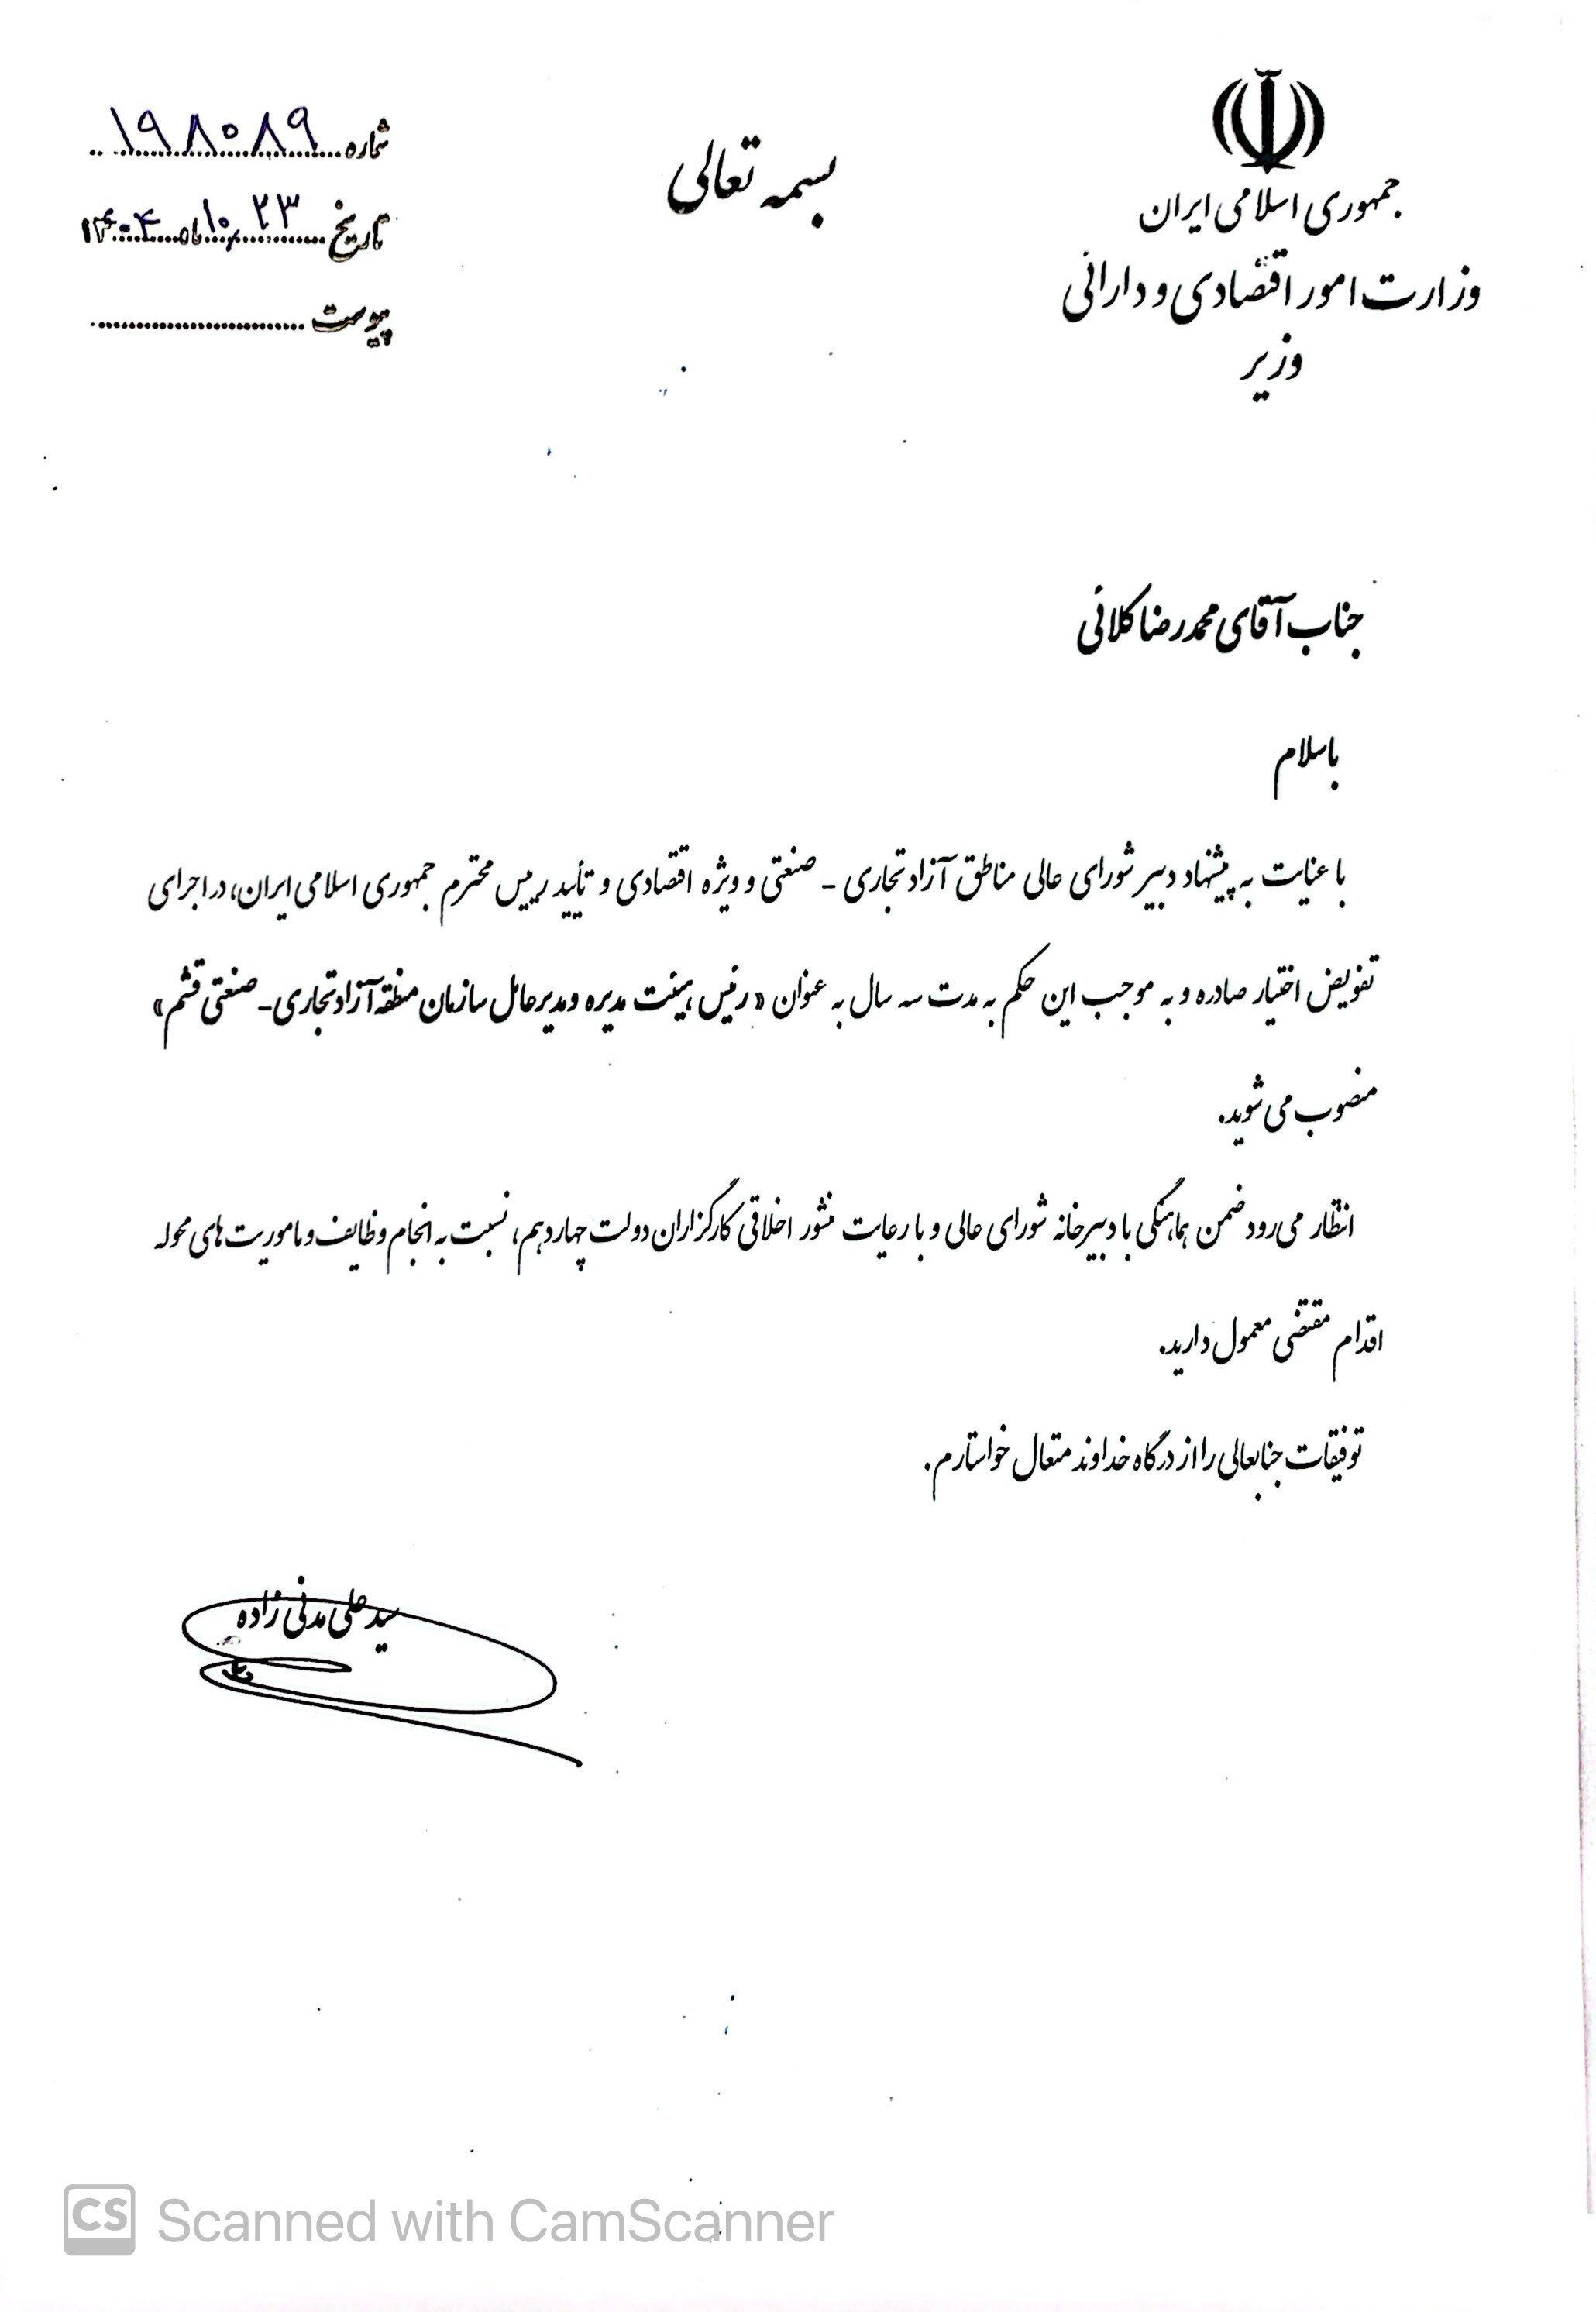 جمهوری اسلامی ایران
وزارت امور اقتصادی و دارائی
وزیر
بسمه تعالی
شماره ۱۹۸۰۸۹
تاریخ ۲۳ / ۱۰ ماه ۱۴۰۴
پیوست
جناب آقای محمدرضا کلائی
باسلام
با عنایت به پیشنهاد دبیر شورای عالی مناطق آزاد تجاری - صنعتی و ویژه اقتصادی و تأیید رییس محترم جمهوری اسلامی ایران، در اجرای
تفویض اختیار صادره و به موجب این حکم به مدت سه سال به عنوان «رئیس هیئت مدیره و مدیرعامل سازمان منطقه آزاد تجاری - صنعتی قشم»
منصوب می‌شوید.
انتظار می‌رود ضمن هماهنگی با دبیرخانه شورای عالی و با رعایت منشور اخلاقی کارگزاران دولت چهاردهم، نسبت به انجام وظایف و ماموریت‌های محوله
اقدام مقتضی معمول دارید.
توفیقات جنابعالی را از درگاه خداوند متعال خواستارم.
سید علی مدنی زاده
CS Scanned with CamScanner